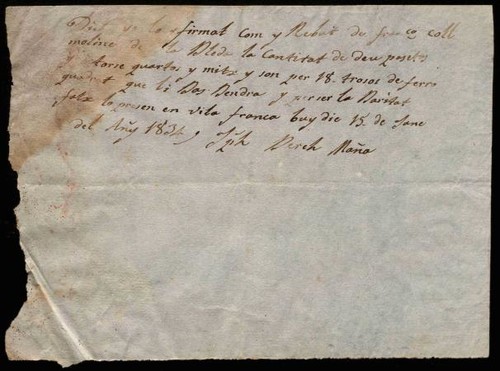 Dich yo lo sfirmat Com y Rebut de franco coll
moliné de la Bleda la Cantitat de deu pesetas
y tarse quartos y mitx y son per 18. trosos de ferro
quadrat que li Bas Bendra y perser la Baritat
fatx lo presen en vila franca buy die 15. de Jane
del Añy 1834,, Jph Verch Maña